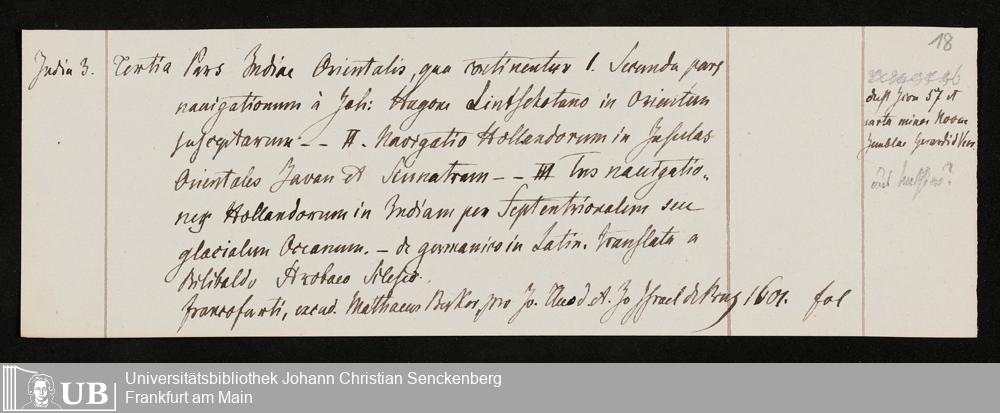 18
India 3.
Tertia Pars Indiae Orientalis, qua continentur I. Secunda pars
navigationum à Joh: Hugone Lintschotano in Orientem
susceptarum - - II. Navigatio Hollandorum in Insulas
Orientales Javan et Sumatram - - III Tres navigatio-
nes Hollandorum in Indiam per Septentrionalem seu
glacialem Oceanum. - de germanico in Latin. translata a
Bilibaldo Strobaeo Silesio.
francofurti, excud. Matthaeus Becker, pro Jo. Theod. et. Jo Israel de Bry 1601. fol
57 et
carta minor Novae
Zemblae Gerardi de Veer.
Universitätsbibliothek Johann Christian Senckenberg
Frankfurt am Main
UB